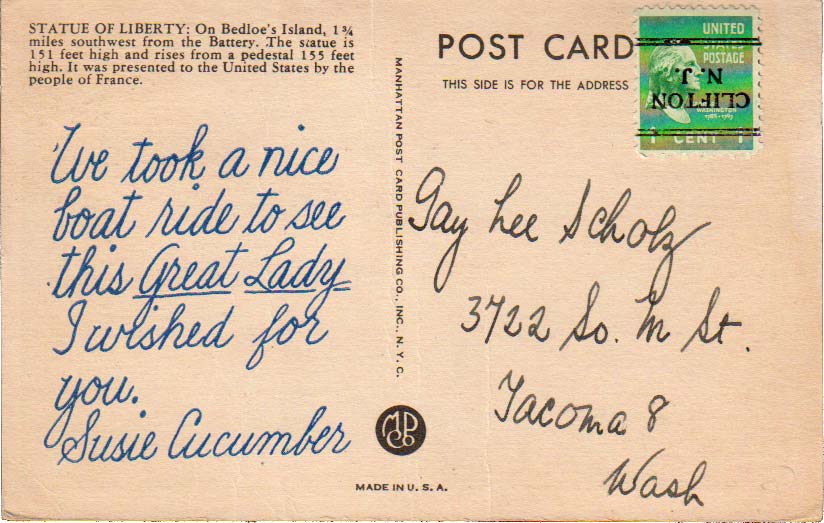 STATUE OF LIBERTY: On Bedloe's Island, 1¾
miles southwest from the Battery. The statue is
151 feet high and rises from a pedestal 155 feet
high. It was presented to the United States by the
people of France.
We took a nice
boat ride to see
this Great Lady
I wished for
you.
Susie Cucumber
MANHATTAN POST CARD PUBLISHING CO., INC., N. Y. C.
MADE IN U. S. A.
POST CARD
THIS SIDE IS FOR THE ADDRESS
UNITED
STATES
POSTAGE
CLIFTON
N. J.
WASHINGTON
1 CENT 1
Gay Lee Scholz
3722 So. M St.
Tacoma 8
Wash